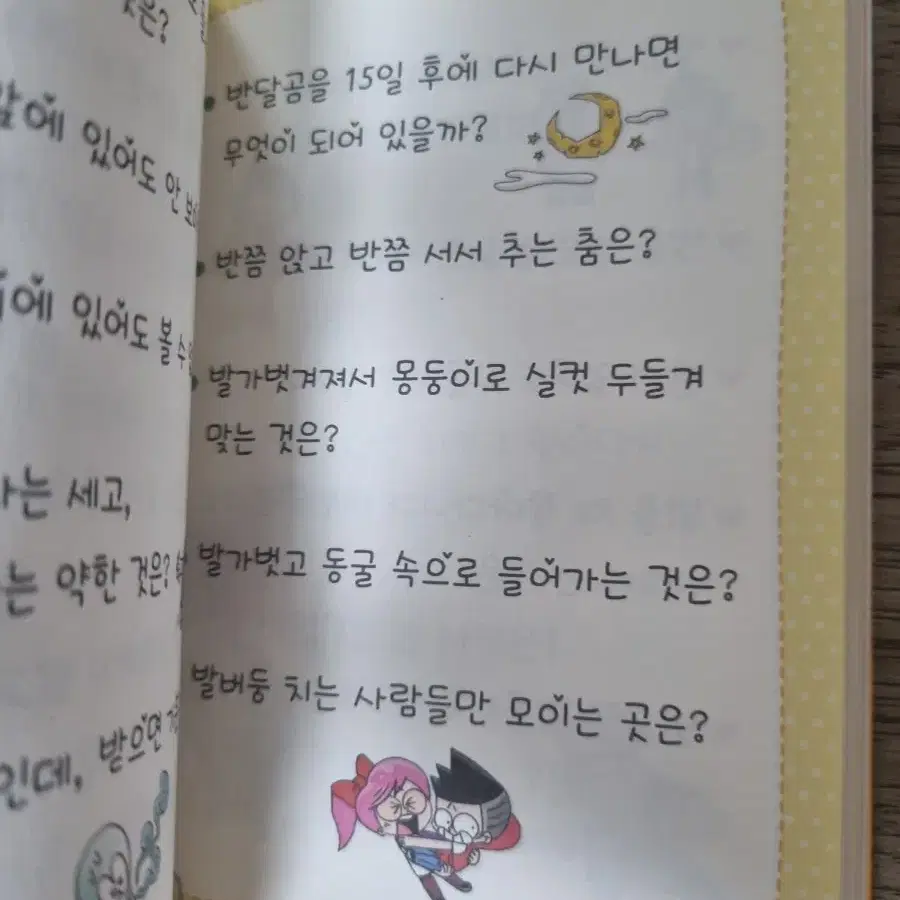 은?
앞에 있어도 안
에 있어도 볼 수
는 세고,
는 약한 것은?
인데, 받으면
• 반달곰을 15일 후에 다시 만나면
무엇이 되어 있을까?
• 반쯤 앉고 반쯤 서서 추는 춤은?
• 발가벗겨져서 몽둥이로 실컷 두들겨
맞는 것은?
발가벗고 동굴 속으로 들어가는 것은?
발버둥 치는 사람들만 모이는 곳은?